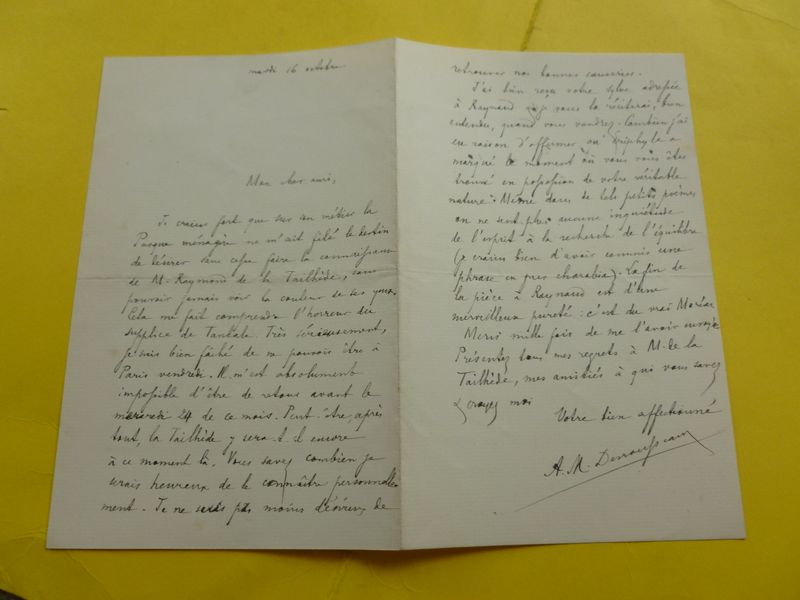 mardi 16 octobre
Mon cher ami,
Je crains fort que sur son métier la
Parque ménagère ne m'ait filé le destin
de désirer sans cesse faire la connaissance
de M. Raymond de la Tailhède, sans
pouvoir jamais voir la couleur de ses yeux.
Cela me fait comprendre l'horreur du
supplice de Tantale. Très sérieusement,
je suis bien fâché de ne pouvoir être à
Paris vendredi. Il m'est absolument
impossible d'être de retour avant le
mercredi 24 de ce mois. Peut-être, après
tout, la Tailhède y sera-t-il encore
à ce moment là. Vous savez combien je
serais heureux de le connaître personnelle
ment. Je ne suis pas moins désireux de
retrouver nos bonnes causeries.
J'ai bien reçu votre sylve adressée
à Raynaud je vous la réciterai, bien
entendu, quand vous voudrez. Combien j'ai
eu raison d'affirmer qu'Ériphyle a
marqué le moment où vous vous êtes
trouvé en possession de votre véritable
nature. Même dans de tels petits poèmes
on ne sent plus aucune inquiétude
de l'esprit à la recherche de l'équilibre
(je crains bien d'avoir commis une
phrase en pur charabia). La fin de
la pièce à Raynaud est d'une
merveilleux pureté : c'est du vrai Moréas
Merci mille fois de me l'avoir envoyée
Présentez tous mes regrets à M. de la
Tailhède, mes amitiés à qui vous savez
& croyez moi
Votre bien affectionné
A. M. Desrousseaux